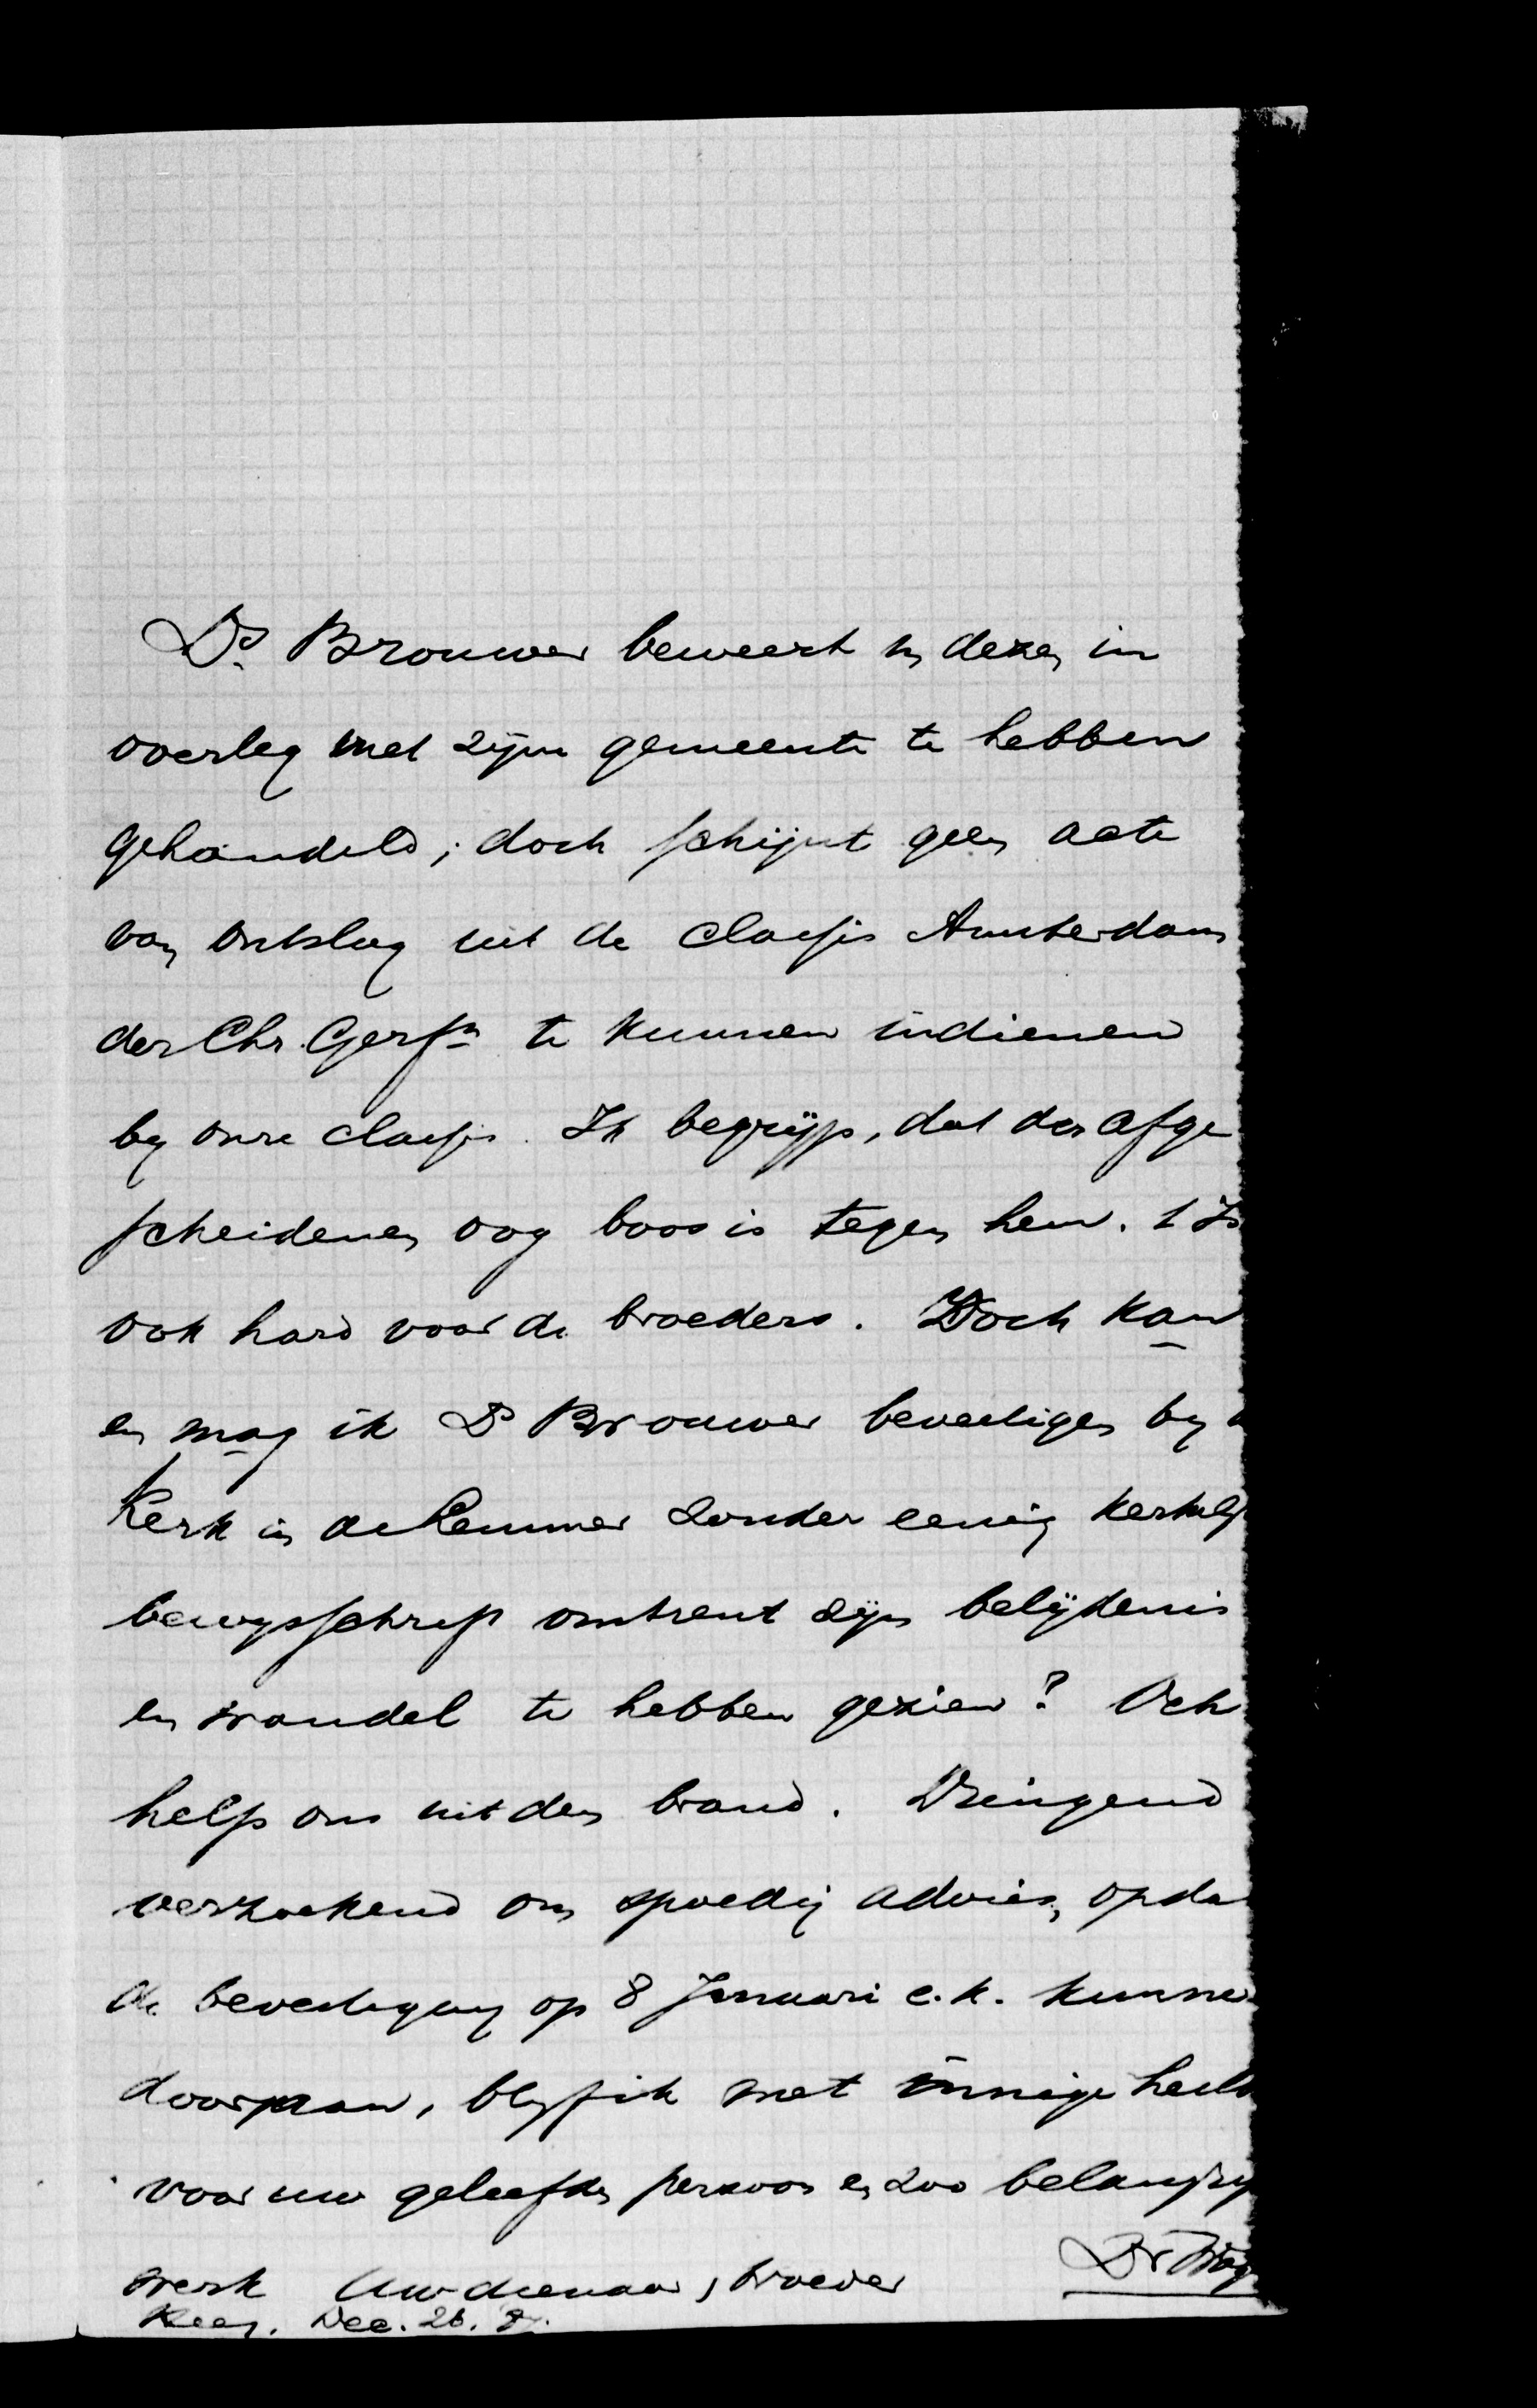 Ds Brouwer beweert in dezen in
overleg met zijn gemeente te hebben
gehandeld; doch schijnt geen acte
van ontslag uit de classis Amsterdam
der Chr. Geref. te kunnen indienen
by onze classis. Ik begrijp, dat der afge
scheidenen oog boos is tegen hem. 't Is
ook hard voor de broeders. Doch kan
en mag ik Ds Brouwer bevestigen by
Kerk in de Lemmer zonder eenig kerkelijk
bewysschrift omtrent zijn belijdenis
en wandel te hebben gezien? Och
help ons uit den brand. Dringend
verzoekend om spoedig advies, opdat
de bevestiging op 8 Januari e.k. kunne
doorgaan, blyf ik met innige
voor uw geliefden persoon en zoo belangryk
werk Uw dienaar, broeder
Dec. 26.